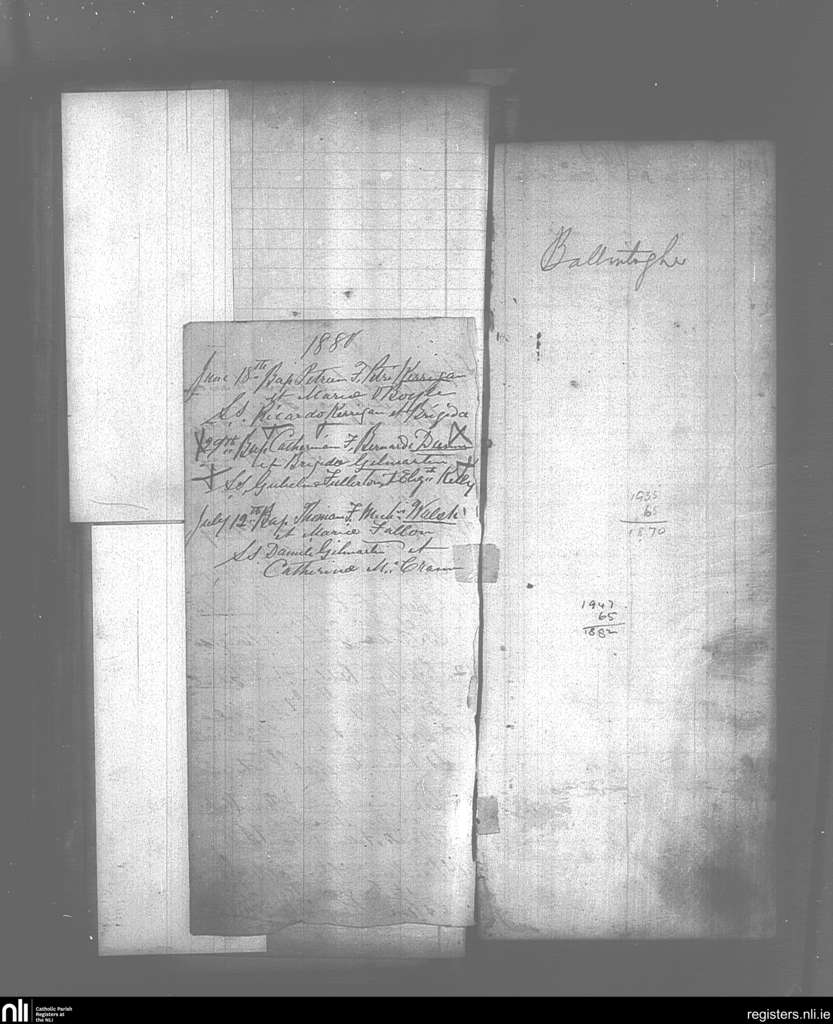 1880
June 18th Bap. Petrum F. Petri Kerrigan
et Maria O'Boyle
Ss. Ricardo Kerrigan et Brigida
X 29th Bap. Catherinam F. Bernardi X
et Brigida Gilmartin
Ss. Gulielmo Fullerton et Elizth Kelly
July 12th Bap. Thomam F. Michs Walsh
et Maria Fallon
Ss. Daniele Gilmartin et
Catherina Mc Crann
Ballintogher
1935
65
1870
1947
65
1882
nli
Catholic Parish
Registers at
the NLI
registers.nli.ie